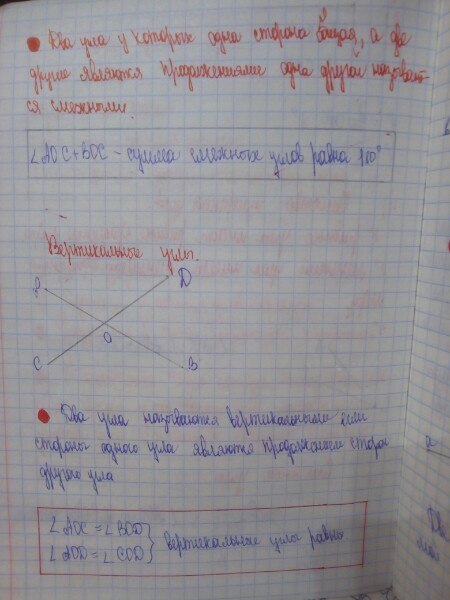 Два угла у которых одна сторона общая, а две
другие являются продолжениями одна другой называют
ся смежными.
∠AOC+BOC - сумма смежных углов равна 180°
Вертикальные углы.
A
D
O
C
B
Два угла называются вертикальными если
стороны одного угла являются продолжением сторон
другого угла
∠AOC = ∠BOD
∠AOD = ∠COB
вертикальные углы равны